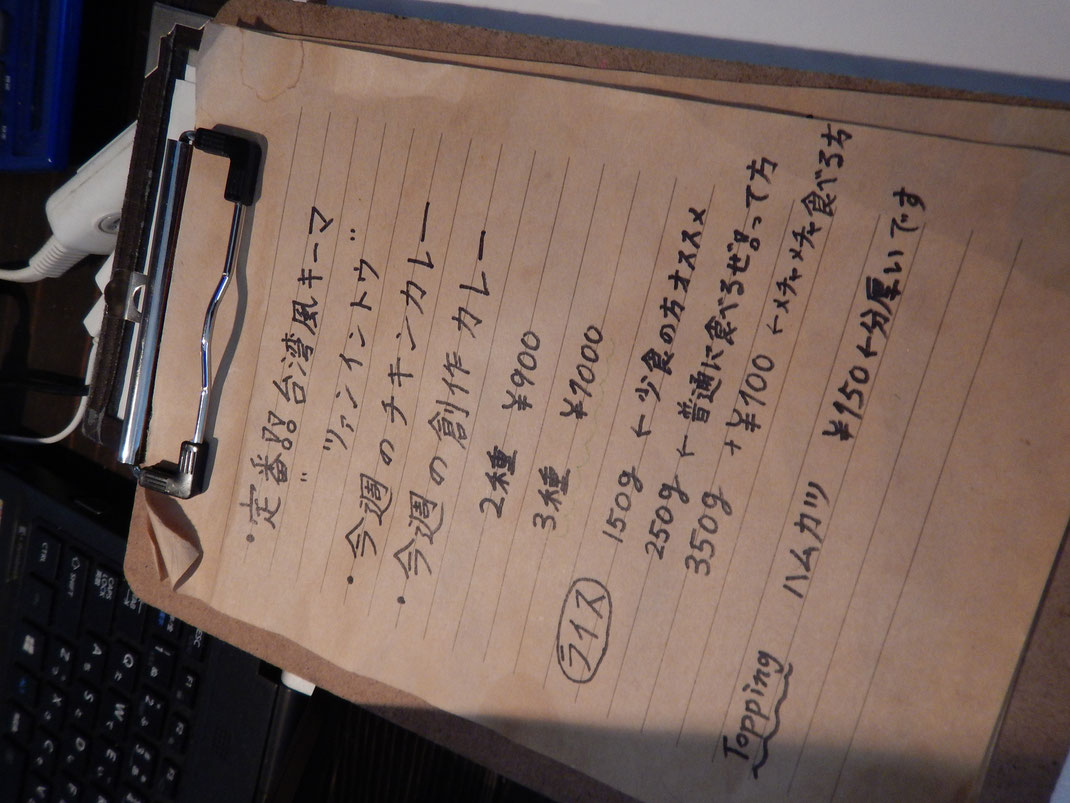 ・定番!! 台湾風キーマ
"ツァンイントウ"
・今週のチキンカレー
・今週の創作カレー
2種 ¥900
3種 ¥1000
ライス
150g ← 少食の方オススメ
250g ← 普通に食べるぜ!!って方
350g +¥100 ←メチャメチャ食べる方
Topping ハムカツ ¥150←分厚いです
CTRL
SHIFT
CAPS LOCK
ESC
F1